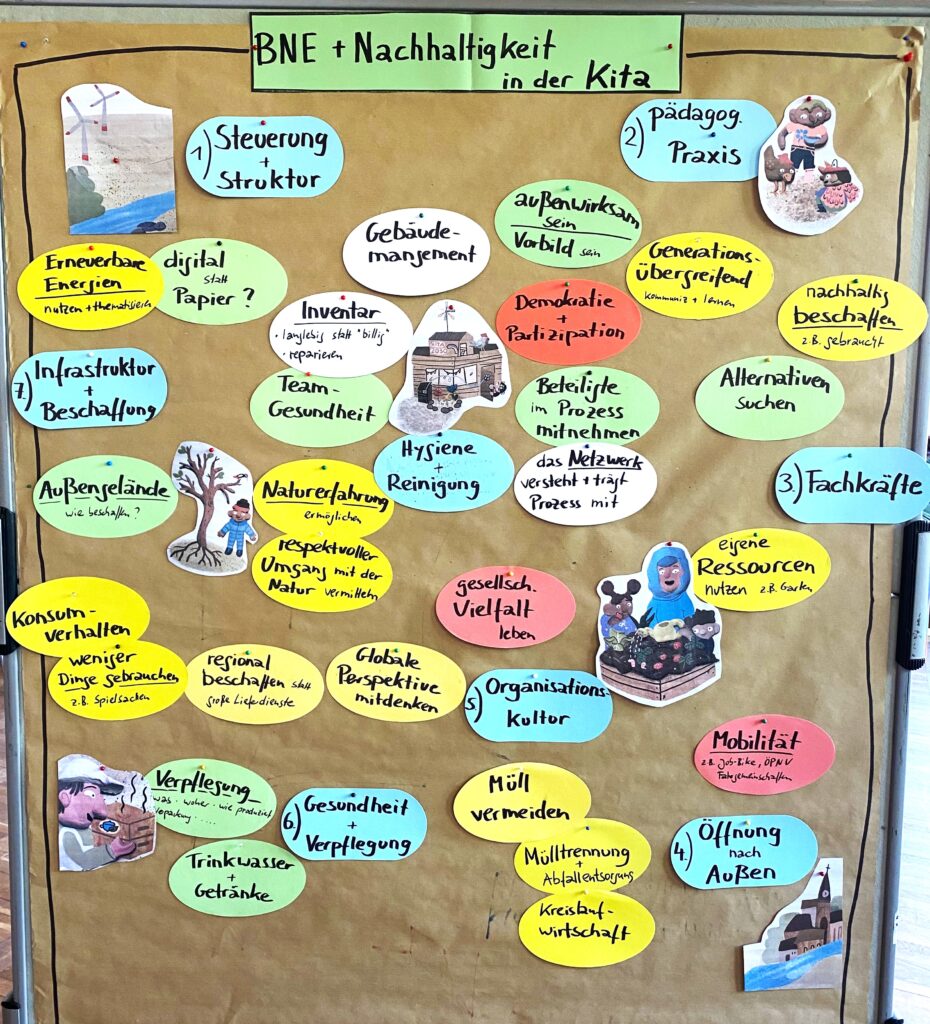 BNE + Nachhaltigkeit
in der Kita
1) Steuerung
+
Struktur
2) pädagog.
Praxis
Gebäude-
manjement
außenwirksam
sein
Vorbild sein
Generations-
übergreifend
kommuniz + lernen
Erneuerbare
Energien
nutzen + thematisieren
digital
statt
Papier?
Inventar
• langlebig statt "billig"
• reparieren
Demokratie
+
Partizipation
nachhaltig
beschaffen
z.B. gebraucht
7.) Infrastruktur
+
Beschaffung
Team-
Gesundheit
Beteiligte
im Prozess
mitnehmen
Alternativen
suchen
Hygiene
+
Reinigung
das Netzwerk
versteht + trägt
Prozess mit
3.) Fachkräfte
Außengelände
wie beschaffen?
Naturerfahrung
ermöglichen
respektvoller
Umgang mit der
Natur vermitteln
eigene
Ressourcen
nutzen z.B. Garten
gesellsch.
Vielfalt
leben
Konsum-
verhalten
weniger
Dinge gebrauchen
z.B. Spielsachen
regional
beschaffen statt
große Lieferdienste
Globale
Perspektive
mitdenken
5) Organisations-
kultur
Mobilität
z.B. Job-Bike, ÖPNV
Fahrgemeinschaften
Verpflegung
was · woher · wie produziert
6.) Gesundheit
+
Verpflegung
Müll
vermeiden
Trinkwasser
+
Getränke
Mülltrennung
+
Abfallentsorgung
4.) Öffnung
nach
Außen
Kreislauf-
wirtschaft